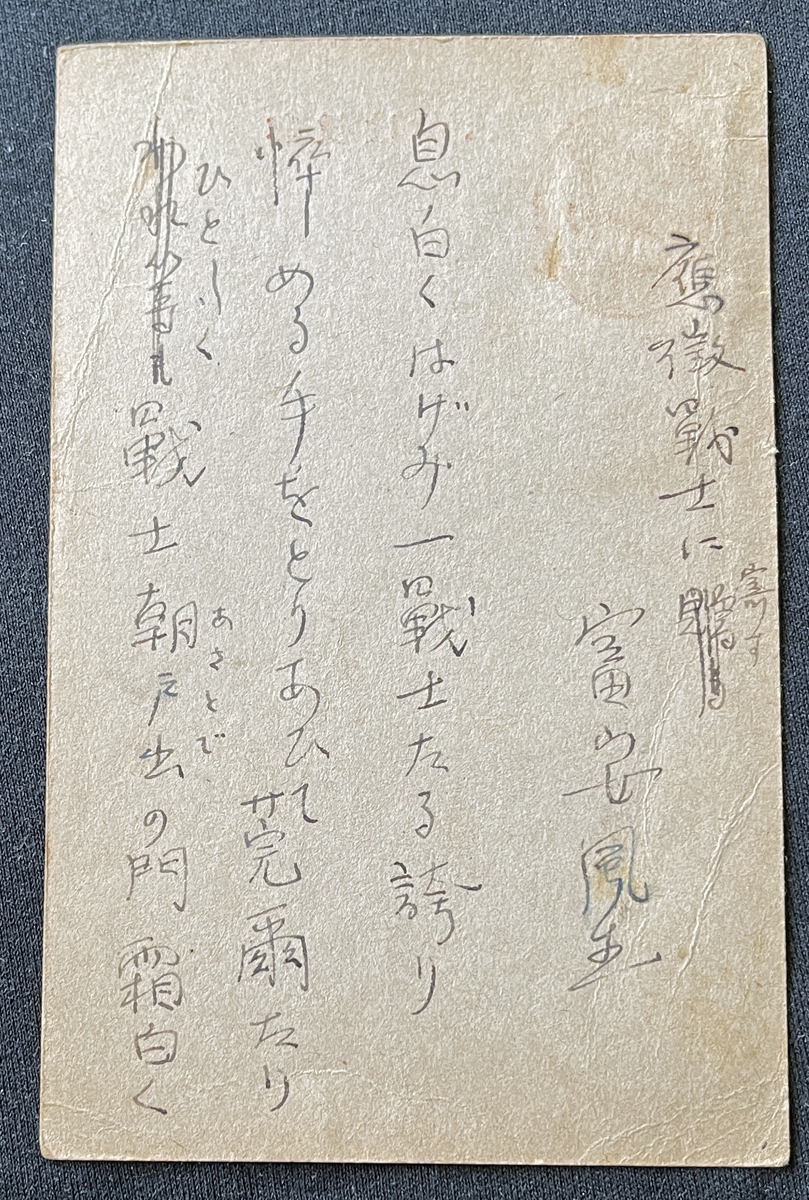 應徴戰士に
寄す
富安風生
息白くはげみ一戰士たる誇り
悴める手をとりあひて莞爾たり
ひとしく
戰士朝戸出の門霜白く
あさとで